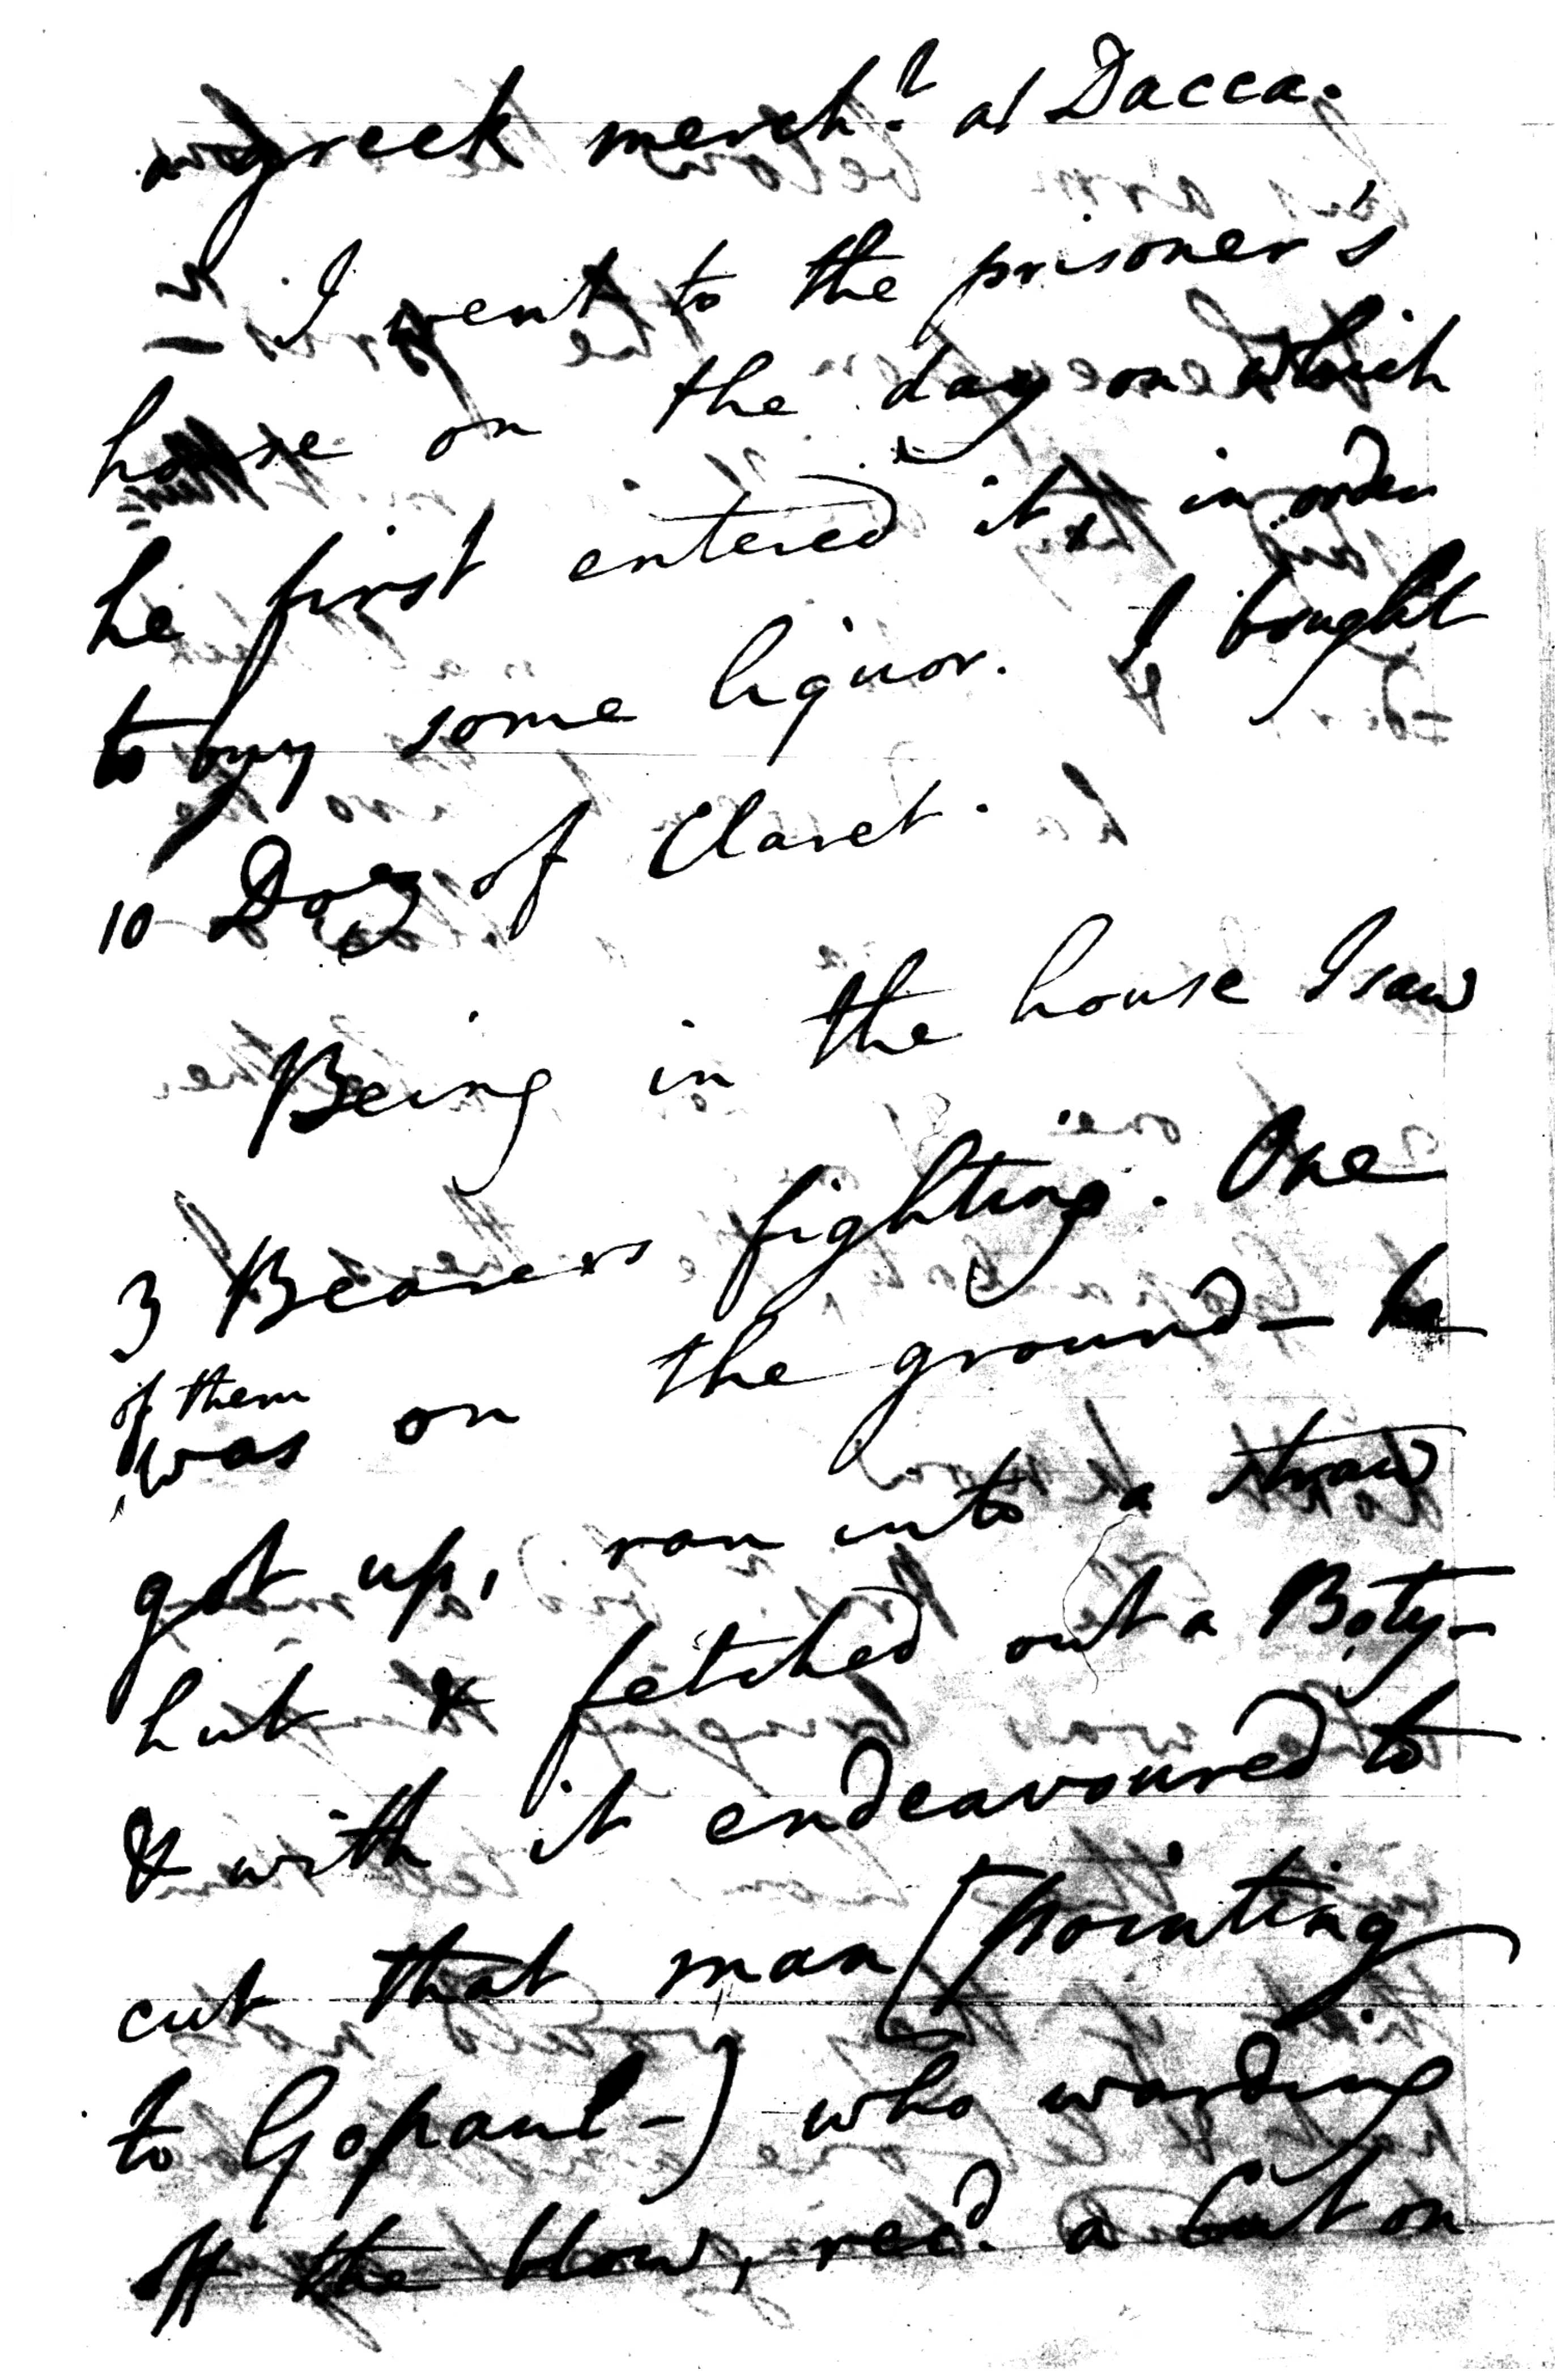 a greek merch.t at Dacca.
I went to the prisoner's
house on the day on which
he first entered it, in order
to buy some liquor. I bought
10 Doz of Claret.
Being in the house I saw
3 Bearers fighting. One
of them
was on the ground — he
got up, ran into a straw
hut & fetched out a Boty —
& with it endeavoured to
cut that man (pointing
to Gopaul —) who warding
off the blow, rec.d a Cut on